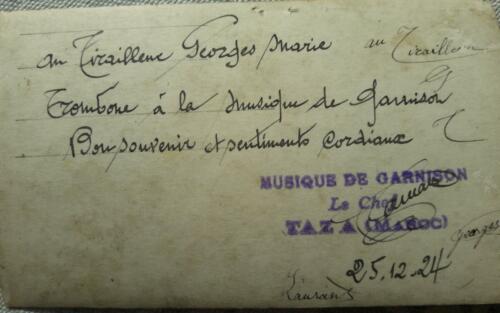 au Tirailleur Georges Marie
au Tirailleur
Trombone à la Musique de Garnison
G
Bon souvenir et sentiments cordiaux
T
MUSIQUE DE GARNISON
Le Chef
TAZA (MAROC)
Georges
25.12.24